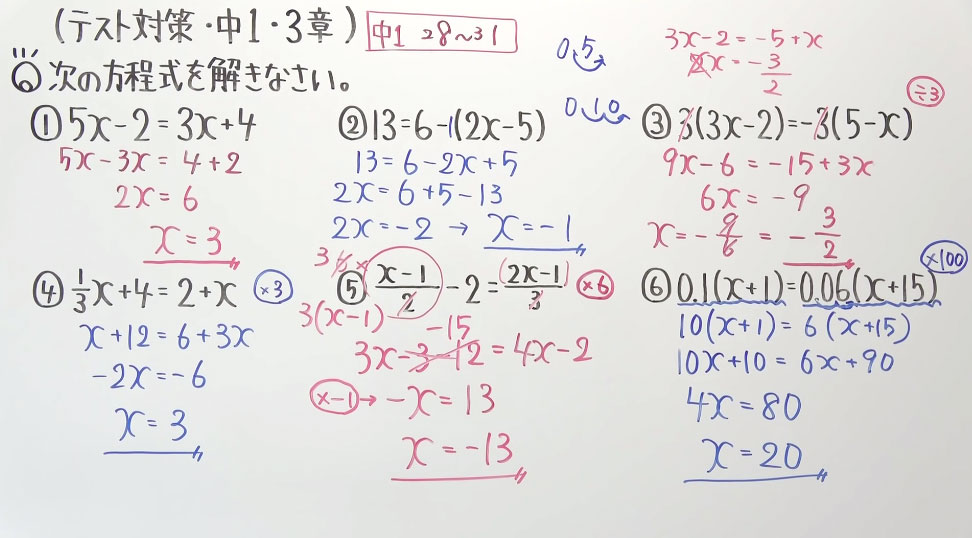 (テスト対策・中1・3章)
中1 28〜31
次の方程式を解きなさい。
① 5x-2=3x+4
5x-3x=4+2
2x=6
x=3
0.5
0.10
② 13=6-1(2x-5)
13=6-2x+5
2x=6+5-13
2x=-2 → x=-1
3x-2=-5+x
2x=-3/2
÷3
③ 3(3x-2)=-3(5-x)
9x-6=-15+3x
6x=-9
x=-9/6=-3/2
④ 1/3x+4=2+x ×3
x+12=6+3x
-2x=-6
x=3
3 6×
⑤ x-1/2-2=(2x-1)/3 ×6
3(x-1) -15
3x-3-12=4x-2
×-1→ -x=13
x=-13
×100
⑥ 0.1(x+1)=0.06(x+15)
10(x+1)=6(x+15)
10x+10=6x+90
4x=80
x=20